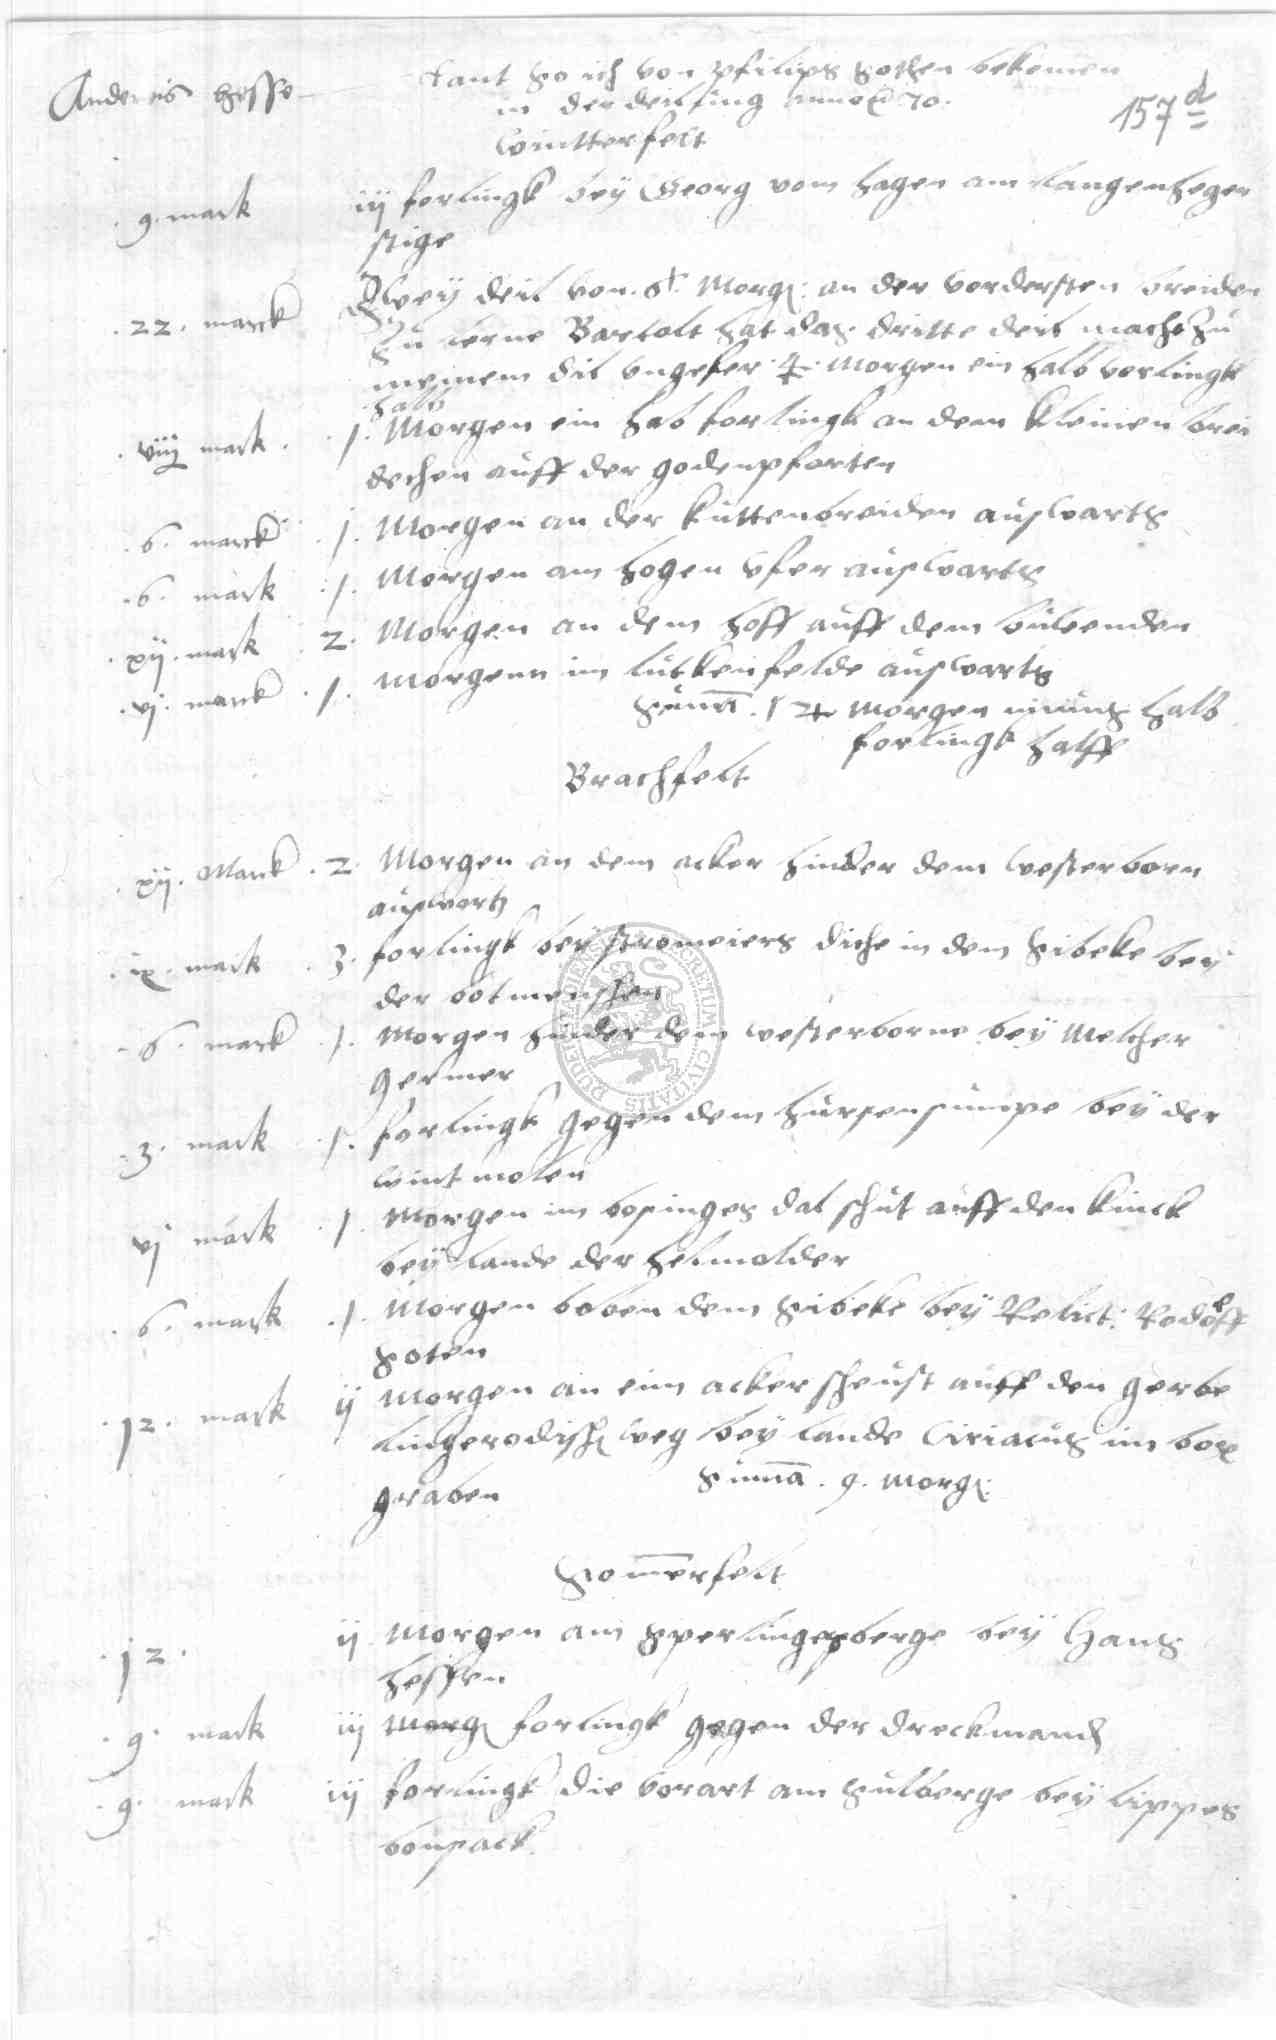 Andereis Hesse
Lant so ich von Philips Sothen bekomen
in der deilung anno 70.
157 d
Wintterfelt
.9. mark iij forlingk bey Georg vom Hagen am langenheger
stige
.22. marck Zwey deil von .6. Morg: an der vordersten breiden
zu Berne Bartolt hat das dritte deil macht zu
meinem dil ungefer .4. Morgen ein halb vorlingk
halb
.viij mark. .1. Morgen ein halb forlingk an dem kleinen brei
dechen auff der godenpforten
.6. marck .1. Morgen an der kuttenbreiden auswarts
.6. mark .1. Morgen am hogen ufer auswarts
.xij. mark .2. Morgen an dem hoff auff dem
.vj. marck .1. Morgenn im lutkenfelde auswarts
Summa. 14 morgen minus halb
forlingk halff
Brachfelt
.xij. Marck .2. Morgen an dem acker hinder dem westerborn
auswarts
.ix. mark .3. forlingk bey Stromeiers diche in dem Sibeke bey
der
.6. mark .1. Morgen hinder dem westerborne bey Melcher
Germer
.3. mark .1. forlingk gegen dem hursensumpe bey der
wintmolen
vj mark .1. Morgen im bopinges dal schut auff den kinck
bey lande der Helmolder
.6. mark .1. Morgen boben dem Sibeke bey Relict: Rodolff
Soten
.12. mark ij Morgen an eim acker scheust auff den gerbe
lingerodisch weg bey lande Ciriacus im bor
graben Summa. 9. Morg:
Sommerfelt
.12. ij Morgen am Sperlingesberge bey Hans
Hessen
.9. mark iij Morg forlingk gegen der dreckmand
.9. mark iij forlingk die vorart am Sulberge bey Lippes
bonsack.
SECRETUM CIVITATIS